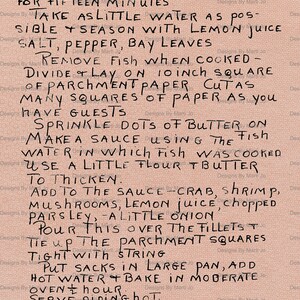 FOR FIFTEEN MINUTES
TAKE AS LITTLE WATER AS POS-
SIBLE & SEASON WITH LEMON JUICE
SALT, PEPPER, BAY LEAVES
REMOVE FISH WHEN COOKED-
DIVIDE & LAY ON 10 INCH SQUARE
OF PARCHMENT PAPER CUT AS
MANY SQUARES OF PAPER AS YOU
HAVE GUESTS
SPRINKLE DOTS OF BUTTER ON FISH
MAKE A SAUCE USING THE
WATER IN WHICH FISH WAS COOKED
USE A LITTLE FLOUR & BUTTER
TO THICKEN.
ADD TO THE SAUCE - CRAB, SHRIMP,
MUSHROOMS, LEMON JUICE, CHOPPED
PARSLEY, - A LITTLE ONION
POUR THIS OVER THE FILLETS &
TIE UP THE PARCHMENT SQUARES
TIGHT WITH STRING
PUT SACKS IN LARGE PAN, ADD
HOT WATER & BAKE IN MODERATE
OVEN ½ HOUR
SERVE PIPING HOT